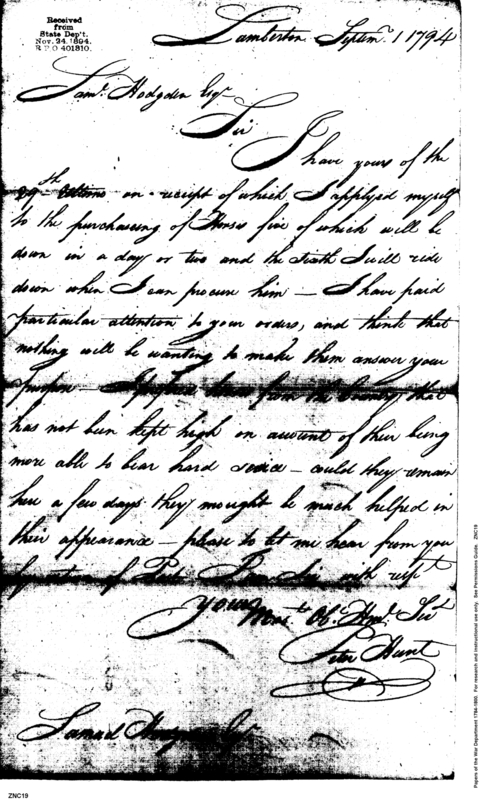 Received
from
State Dep't.
Nov. 24, 1894.
R P O 401810.
Lamberton Septem. 1 1794
Saml. Hodgden Esqr
Sir
I have yours of the
29th Ultimo on receipt of which I applyed myself
to the purchasing of Horses five of which will be
down in a day or two and the sixth I will ride
down when I can procure him — I have paid
particular attention to your orders, and think that
nothing will be wanting to make them answer your
purpose — I prefered those from the Country that
has not been kept high on account of their being
more able to bear hard service — could they remain
here a few days they mought be much helped in
their appearance — please to let me hear from you
by return of Post I am Sir with respt
Yours Most Ob. Hml. Sert
Peter Hunt
Samuel Hodgden Esqr
ZNC19
Papers of the War Department 1784-1800. For research and instructional use only. See Permissions Guide. ZNC19